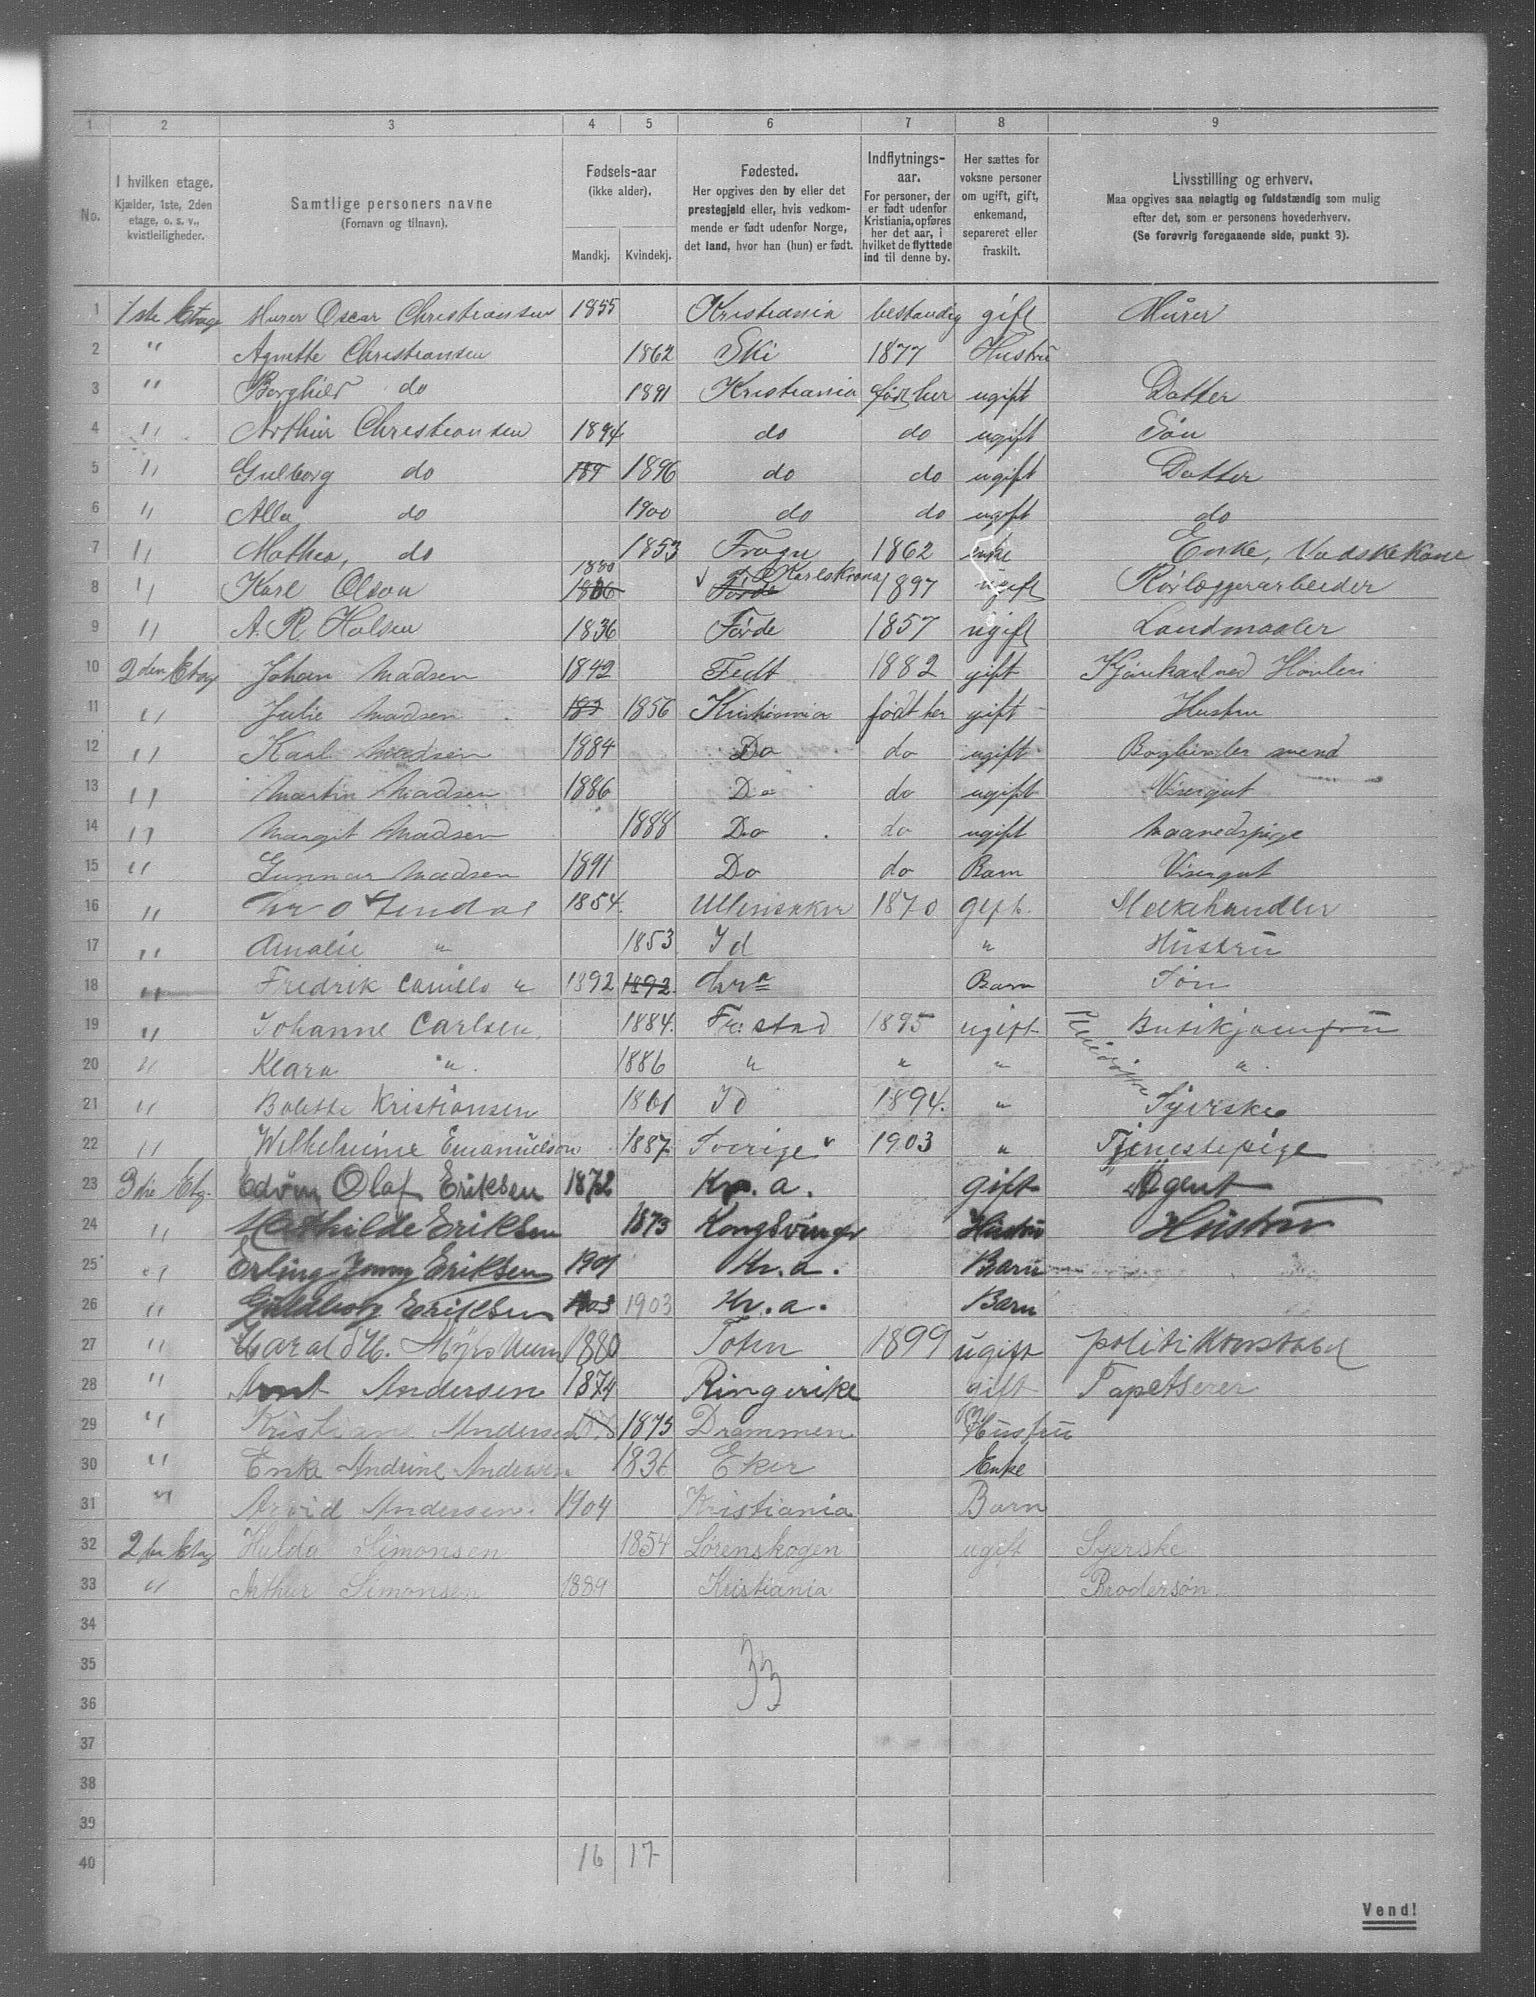 1 2 3 4 5 6 7 8 9
No.
I hvilken etage.
Kjælder, 1ste, 2den
etage, o. s. v.,
kvistleiligheder.
Samtlige personers navne
(Fornavn og tilnavn).
Fødsels-aar
(ikke alder).
Mandkj. Kvindekj.
Fødested.
Her opgives den by eller det
prestegjeld eller, hvis vedkom-
mende er født udenfor Norge,
det land, hvor han (hun) er født.
Indflytnings-
aar.
For personer, der
er født udenfor
Kristiania, opføres
her det aar, i
hvilket de flyttede
ind til denne by.
Her sættes for
voksne personer
om ugift, gift,
enkemand,
separeret eller
fraskilt.
Livsstilling og erhverv.
Maa opgives saa nøiagtig og fuldstændig som mulig
efter det, som er personens hovederhverv.
(Se forøvrig foregaaende side, punkt 3).
1 1ste Etage Murer Oscar Christiansen 1855 Kristiania bestandig gift Murer
2 " Agnette Christiansen 1862 Ski 1877 Hustru
3 " Borghild do 1891 Kristiania født her ugift Datter
4 " Arthur Christiansen 1894 do do ugift Søn
5 " Gulborg do 189 1896 do do ugift Datter
6 " Alla do 1900 do do ugift do
7 " Mathea, do 1853 Frogn 1862 enke Enke, Vadskekone
8 " Karl Olson 1880 Førde Karlskrona 1897 ugift Rørlæggerarbeider
9 " A. R. Holsen 1836 Førde 1857 ugift Landmaaler
10 2den Etag Johan Madsen 1842 Fedt 1882 gift Kjørekarl ved Høvleri
11 " Julie Madsen 183 1856 Kristiania født her gift Hustru
12 " Karl Madsen 1884 Do do ugift Bogbinder svend
13 " Martin Madsen 1886 Do do ugift Visergut
14 " Margit Madsen 1888 Do do ugift Maanedspige
15 " Gunnar Madsen 1891 Do do Barn Visergut
16 " 1854. Ullensaker 1870 gift. Melkehandler
17 " Amalie " 1853 Id " Hustru
18 " Fredrik Camillo " 1892 1892 Chra Barn Søn
19 " Johanne Carlsen 1884. Fr: stad 1895 ugift Butikjomfru
20 " Klara " 1886 " " " "
21 " Bolette Kristiansen 1861 Id 1894. " Syerske
22 " Wilhelmine Emanuelson 1887 Sverige 1903 " Tjenestepige
23 3die Etg. Olaf Eriksen 1872 Kr. a. gift Agent
24 " Mathilde Eriksen 1873 Kongsvinger Hustru Hustru
25 " Erling Jonny Eriksen 1901 Kr. a. Barn
26 " Guldborg Eriksen 1903 1903 Kr. a. Barn
27 " Harald H. 1880 Toten 1899 ugift politi Konstabel
28 " Arnt Andersen 1874 Ringerike gift Tapetserer
29 " Kristiane Andersen 1875 Drammen Hustru
30 " Enke Andrine Andersen 1836 Eker Enke
31 " Arvid Andersen. 1904 Kristiania Barn
32 2den Etag Hulda Simonsen 1854 Lørenskogen ugift Syerske
33 " Arthur Simonsen 1889 Kristiania Brodersøn
34
35
33
36
37
38
39
40 16 17
Vend!